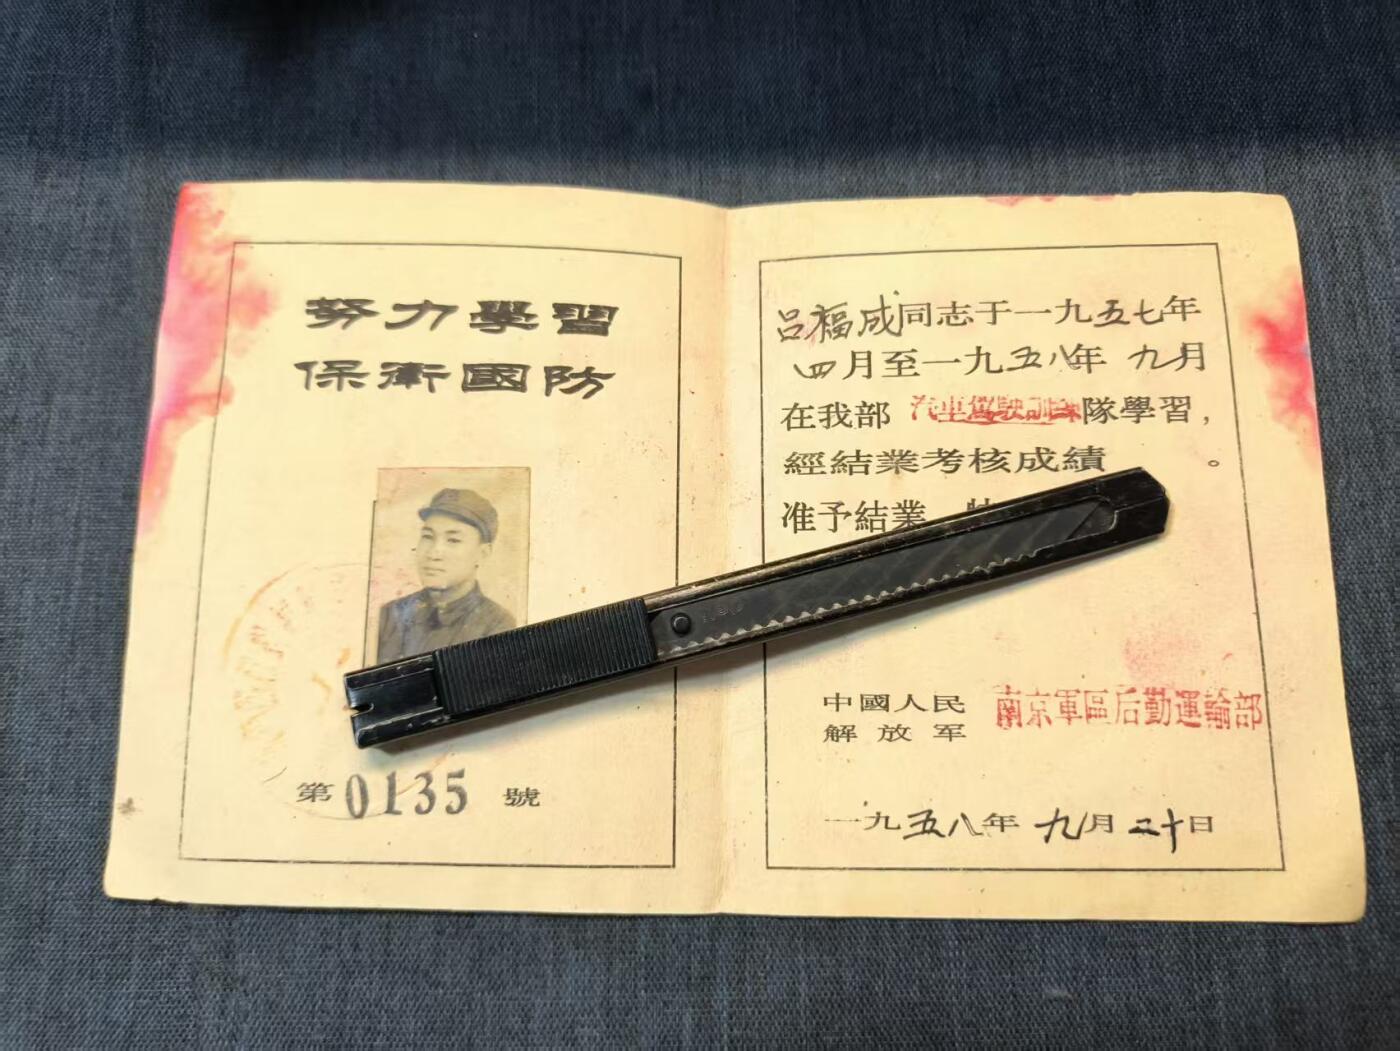 努力學習
保衛國防
第0135號
吕福成同志于一九五七年
四月至一九五八年九月
在我部汽車駕駛訓練隊學習，
經結業考核成績。
准予結業
中國人民
解放军
南京軍區后勤運輸部
一九五八年九月二十日